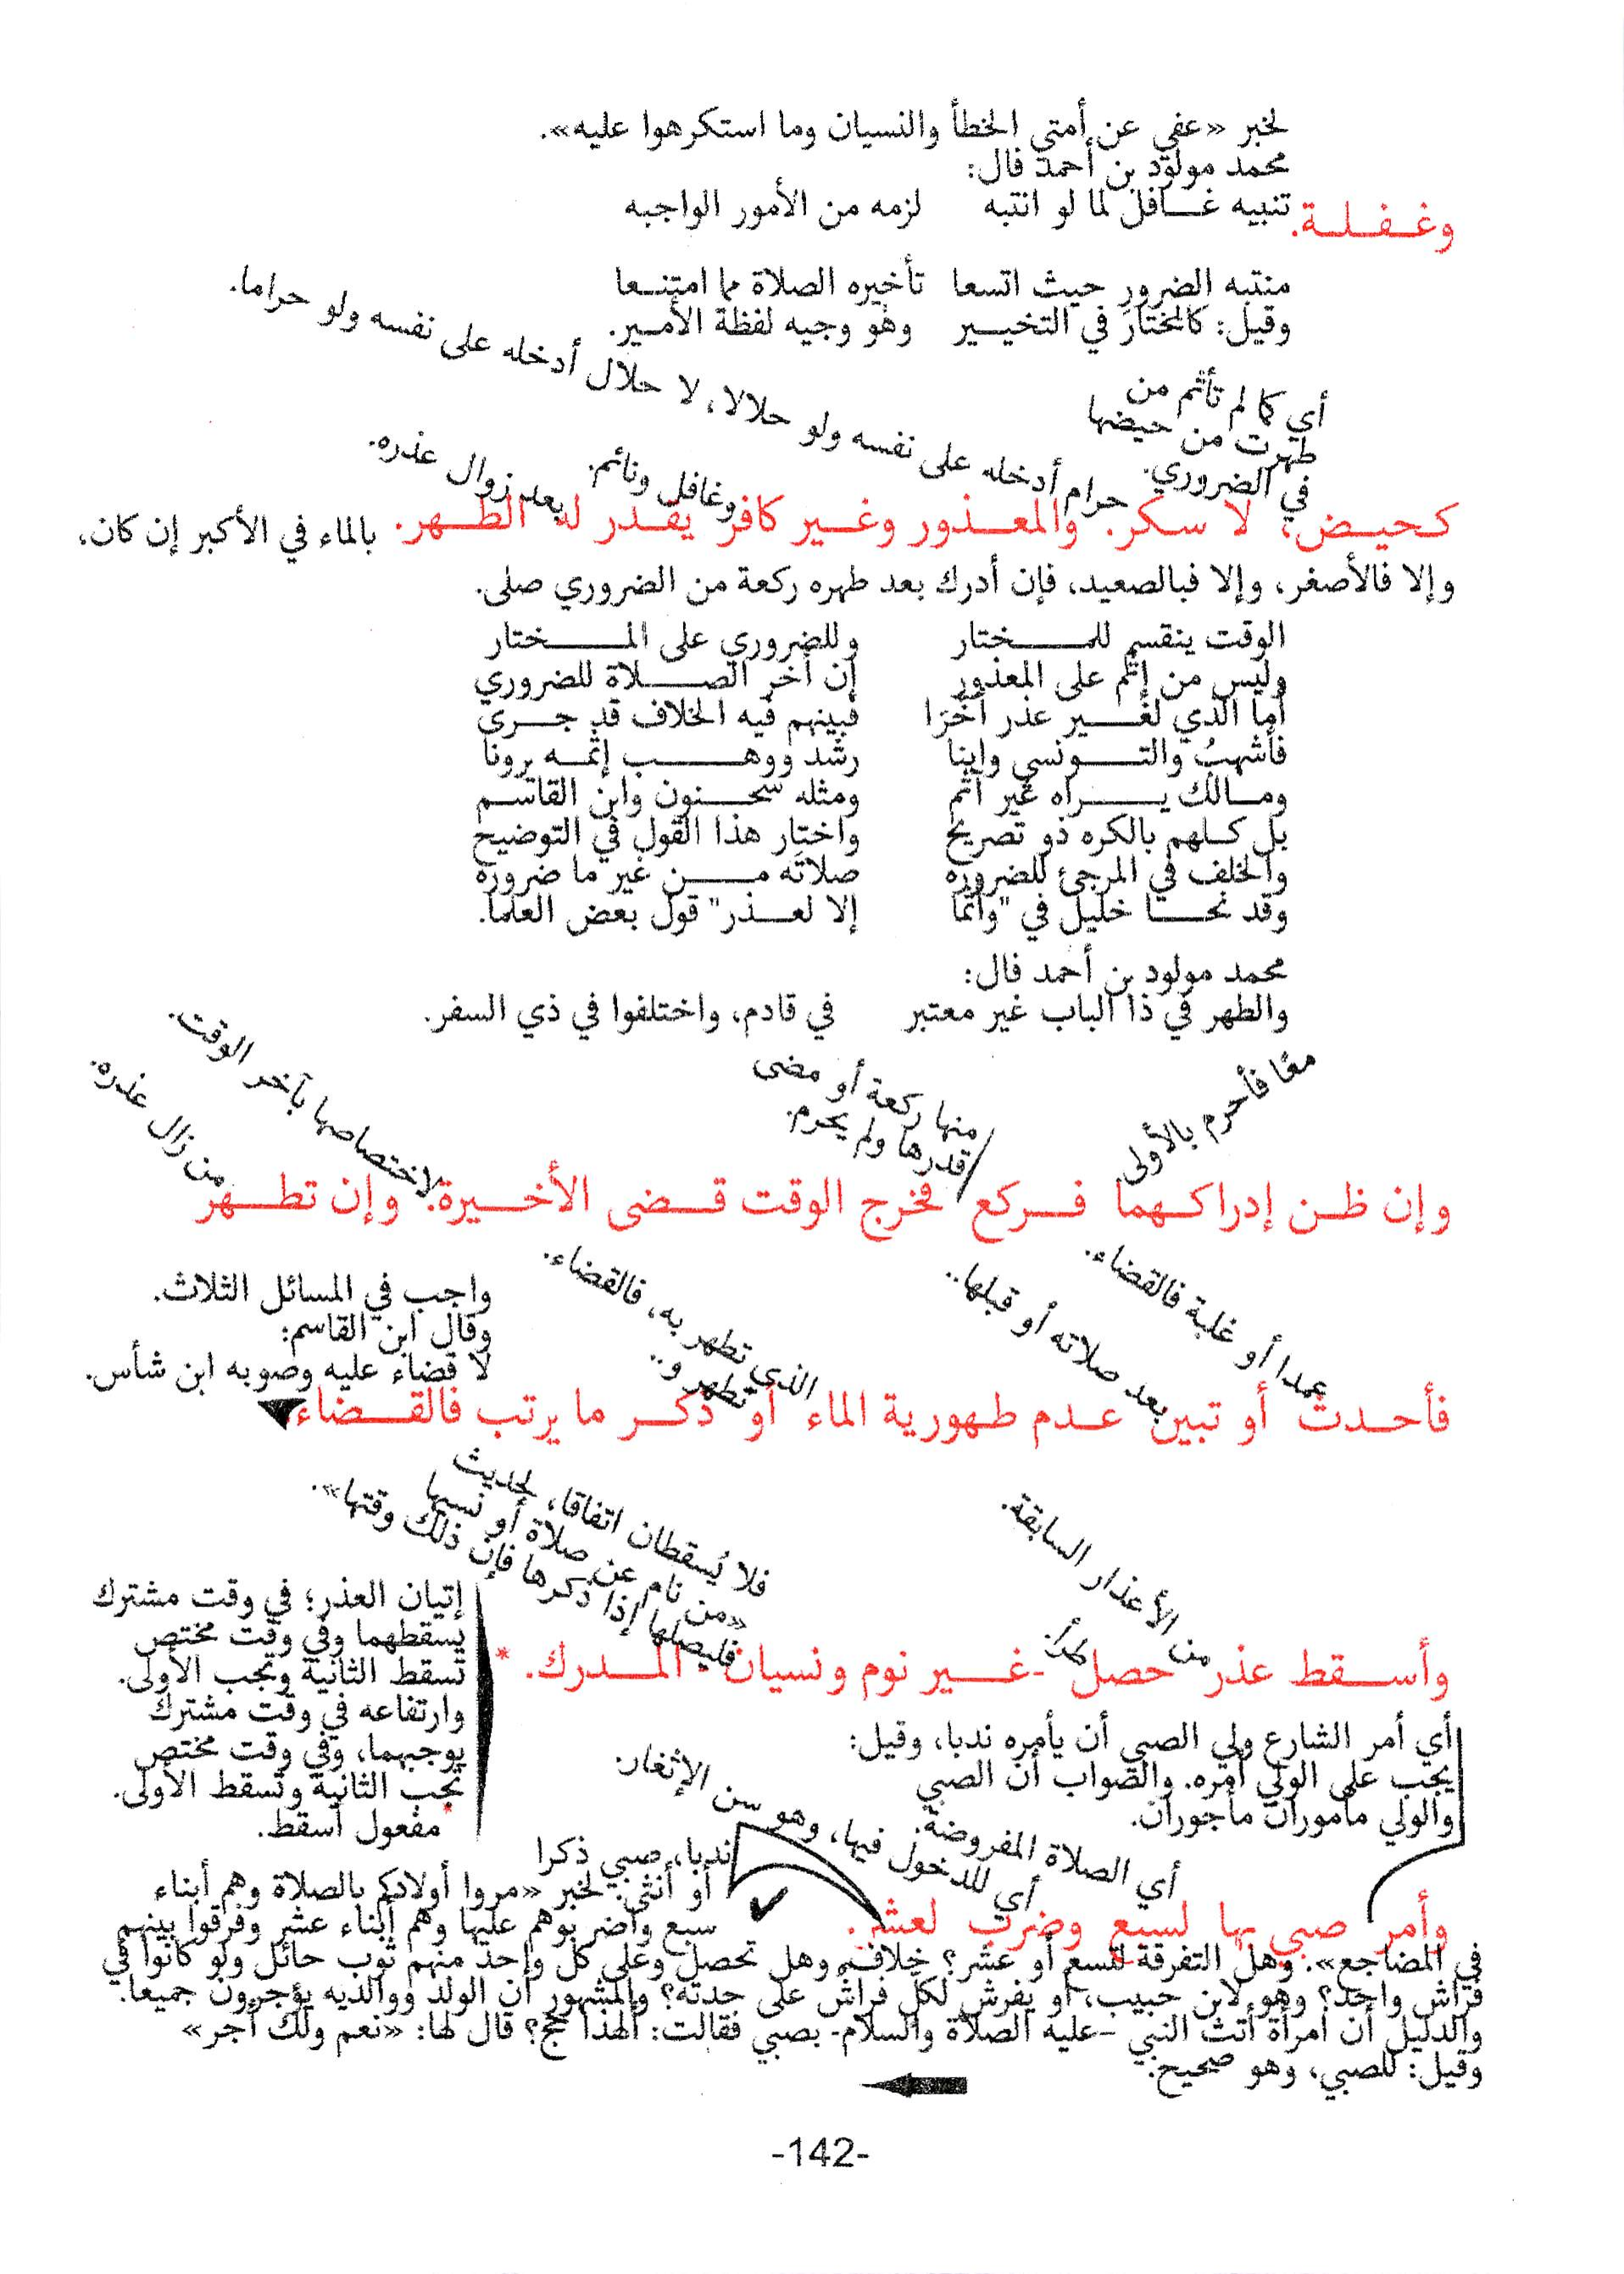 لخبر «عفي عن أمتي الخطأ والنسيان وما استكرهوا عليه».
محمد مولود بن أحمد فال:
وغـفـلـة. تنبيه غـــافل لما لو انتبه لزمه من الأمور الواجبه
منتبه الضرور حيث اتسعا تأخيره الصلاة مما امتنـعا
وقيل: كالمختار في التخيـــير وهو وجيه لفظة الأمـير.
أي كما لم تأثم من
طهرت من حيضها
في الضروري.
حرام أدخله على نفسه ولو حلالا، لا حلال أدخله على نفسه ولو حراما.
وغافل ونائم.
بعد زوال عذره.
كـحيـض، لا سكر. والمعـذور وغـير كافر يقـدر له الطـهر. بالماء في الأكبر إن كان،
وإلا فالأصغر، وإلا فبالصعيد، فإن أدرك بعد طهره ركعة من الضروري صلى.
الوقت ينقسم للمـــختار وللضروري على المـــختار
وليس من إثم على المعذور إن أخر الصـــلاة للضروري
أما الذي لغـــير عذر أخرا فبينهم فيه الخلاف قد جـــرى
فأشهبُ والتـــونسي وابنا رشد ووهـــب إثمـه يرونا
ومـالك يـــراه غير آثم ومثله سحـــنون وابن القاسـم
بل كـلهم بالكره ذو تصريح واختار هذا القول في التوضيح
والخلف في المرجئ للضروره صلاتَه مـــن غير ما ضروره
وقد نحـــا خليل في "وأثما إلا لعـــذر" قول بعض العلما.
محمد مولود بن أحمد فال:
والطهر في ذا الباب غير معتبر في قادم، واختلفوا في ذي السفر.
معًا فأحرم بالأولى
منها ركعة أو مضى
قدرها ولم يحرم.
لاختصاصها بآخر الوقت.
من زال عذره.
وإن ظـن إدراكـهما فـركع فخرج الوقت قـضى الأخـيرة. وإن تطـهر
عمدا أو غلبة فالقضاء.
بعد صلاته أو قبلها..
الذي تطهر به، فالقضاء.
تطهر و..
واجب في المسائل الثلاث.
وقال ابن القاسم:
لا قضاء عليه وصوبه ابن شأس.
فأحـدث أو تبين عـدم طـهورية الماء أو ذكـر ما يرتب فالقـضاء
من الأعذار السابقة.
طرأ.
فلا يُسقطان اتفاقا، لحديث
«من نام عن صلاة أو نسيها
فليصلها إذا ذكرها فإن ذلك وقتها».
وأسـقط عذر حصل -غـير نوم ونسيان- المـدرك. *
إتيان العذر؛ في وقت مشترك
يسقطهما وفي وقت مختص
تسقط الثانية وتجب الأولى.
وارتفاعه في وقت مشترك
يوجبهما، وفي وقت مختص
تجب الثانية وتسقط الأولى.
* مفعول أسقط.
أي أمر الشارع ولي الصبي أن يأمره ندبا، وقيل:
يجب على الولي أمره. والصواب أن الصبي
والولي مأموران مأجوران.
أي الصلاة المفروضة.
أي للدخول فيها، وهو سن الإثغار.
وأمر صبي بها لسبع وضرب لعشر.
ندبا، صبي ذكرا
أو أنثى. لخبر «مروا أولادكم بالصلاة وهم أبناء
سبع واضربوهم عليها وهم أبناء عشر وفرقوا بينهم
في المضاجع». وهل التفرقة لتسع أو عشر؟ خلاف، وهل تحصل وعلى كل واحد منهم ثوب حائل ولو كانوا في
فراش واحد؟ وهو لابن حبيب، أو يفرش لكلٍّ فراشٌ على حدته؟ والمشهور أن الولد ووالديه يؤجرون جميعا.
والدليل أن امرأة أتت النبي –عليه الصلاة والسلام- بصبي فقالت: ألهذا حج؟ قال لها: «نعم ولك أجر»
وقيل: للصبي، وهو صحيح.
-142-